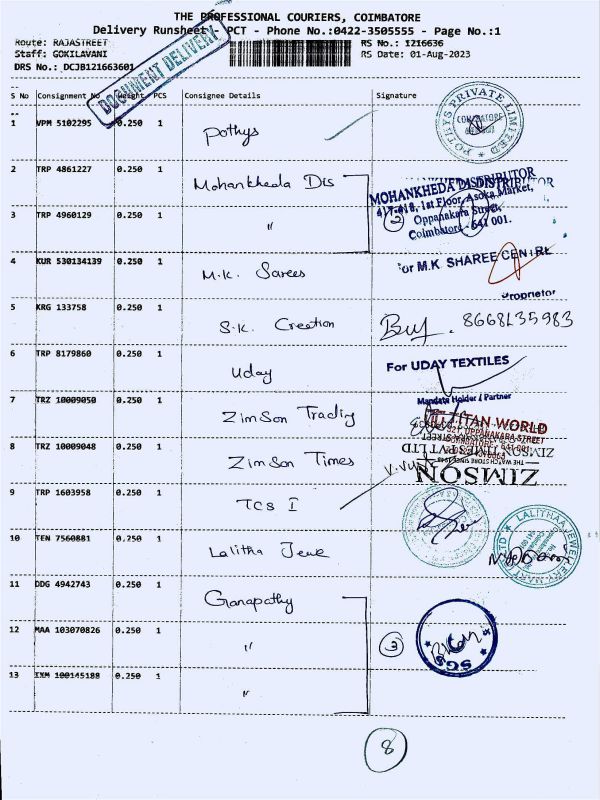 THE PROFESSIONAL COURIERS, COIMBATORE
Delivery Runsheet - PCT - Phone No.:0422-3505555 - Page No.:1
Route: RAJASTREET RS No.: 1216636
Staff: GOKILAVANI RS Date: 01-Aug-2023
DRS No.: DCJB121663601
DOCUMENT DELIVERY
S No Consignment No Weight PCS Consignee Details Signature
1 VPM 5102295 0.250 1 Pothys
POTHYS PRIVATE LIMITED
COIMBATORE
2 TRP 4861227 0.250 1 Mohankheda Dis
MOHANKHEDA DISTRIBUTOR
417-418, 1st Floor, Asoka Market,
3 TRP 4960129 0.250 1 "
2
Oppanakara Street,
Coimbatore - 641 001.
4 KUR 530134139 0.250 1 M.K. Sarees
For M.K. SHAREE CENTRE
Proprietor
5 KRG 133758 0.250 1 S.K. Creation
6 TRP 8179860 0.250 1 Uday
For UDAY TEXTILES
Mandate Holder / Partner
7 TRZ 10009050 0.250 1 ZimSon Trading
TITAN WORLD
OPPANAKARA STREET
8 TRZ 10009048 0.250 1 ZimSon Times
ZIMSON TIMES PVT LTD
THE WATCH STORE SINCE 1948
ZIMSON
9 TRP 1603958 0.250 1 TCS I
10 TEN 7560881 0.250 1 Lalitha Jewe
LALITHAA JEWELLERY MART
11 DDG 4942743 0.250 1 Ganapathy
12 MAA 103070826 0.250 1 "
3
SGS
13 IXM 100145188 0.250 1 "
8